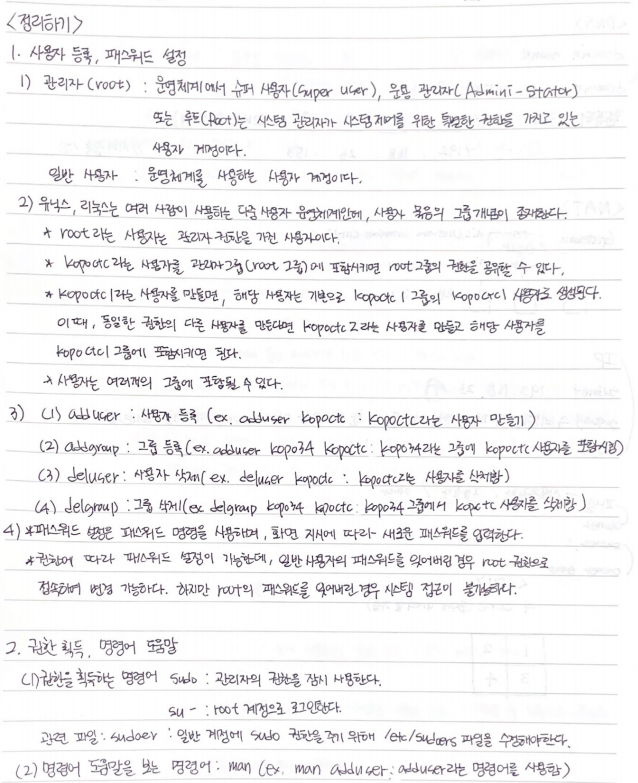 <정리하기>
1. 사용자 등록, 패스워드 설정
1) 관리자(root) : 운영체계에서 슈퍼 사용자(super user), 운용 관리자(Admini-Stator)
또는 루트(Root)는 시스템 관리자가 시스템제어를 위한 특별한 권한을 가지고 있는
사용자 계정이다.
일반 사용자 : 운영체계를 사용하는 사용자 계정이다.
2) 유닉스, 리눅스는 여러 사람이 사용하는 다중 사용자 운영체계인데, 사용자 묶음의 그룹개념이 존재한다.
* root라는 사용자는 관리자 권한을 가진 사용자이다.
* kopoctc라는 사용자를 관리자그룹(root 그룹)에 포함시키면 root그룹의 권한을 공유할 수 있다.
* kopoctc1라는 사용자를 만들면, 해당 사용자는 기본으로 kopoctc1 그룹의 kopocrc1 사용자로 생성된다.
이때, 동일한 권한의 다른 사용자를 만든다면 kopoctc2라는 사용자를 만들고 해당 사용자를
kopoctc1 그룹에 포함시키면 된다.
→ 사용자는 여러개의 그룹에 포함될 수 있다.
3) (1) adduser : 사용자 등록 (ex. adduser kopoctc : kopoctc라는 사용자 만들기)
(2) addgroup : 그룹 등록(ex. adduser kopo34 kopoctc : kopo34라는 그룹에 kopoctc 사용자를 포함시킴)
(3) deluser : 사용자 삭제(ex. deluser kopoctc : kopoctc라는 사용자를 삭제함)
(4) delgroup : 그룹 삭제(ex delgroup kopo34 kpoctc : kopo34 그룹에서 kopctc 사용자를 삭제함)
4) *패스워드 설정은 패스워드 명령을 사용하며, 화면 지시에 따라 새로운 패스워드를 입력한다.
*권한에 따라 패스워드 설정이 가능한데, 일반 사용자의 패스워드를 잊어버린 경우 root 권한으로
접속하여 변경 가능하다. 하지만 root의 패스워드를 잊어버린 경우 시스템 접근이 불가능하다.
2. 권한 획득, 명령어 도움말
(1)권한을 획득하는 명령어 sudo : 관리자의 권한을 잠시 사용한다.
su - : root 계정으로 로그인한다.
관련 파일 : sudoer : 일반 계정에 sudo 권한을 주기 위해 /etc/sudoers 파일을 수정해야한다.
(2) 명령어 도움말을 보는 명령어 : man (ex. man adduser : adduser라는 명령어를 사용함)